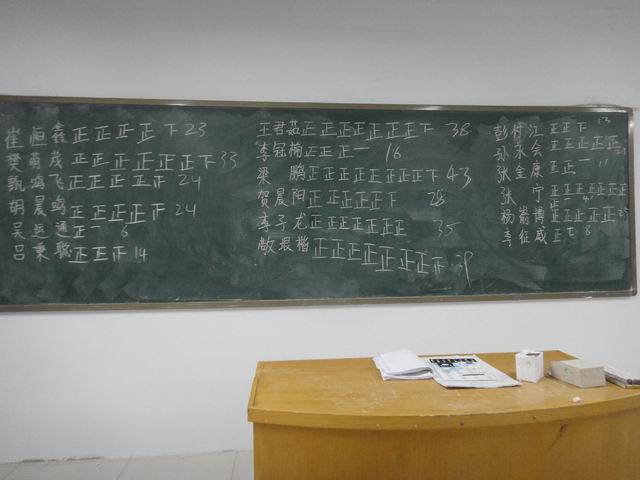 崔恒鑫正正正正下23
樊萌茂正正正正正正下33
甄鸿飞正正正正 24
胡晨鸣正正正正正 24
吴延通正一 6
吕秉聪正正正14
王君茹正正正正正正正下 38
李冠楠正正正一 16
梁鹏正正正正正正正下 43
贺晨阳正正正正正下 28
李子龙正正正正正正 35
敵垠楷正正正正正正正正
彭付江正正下 13
孙永会正正正正
张金康正正一 11
张宁正正正正正
杨嵛博正正正正
李征威正 8